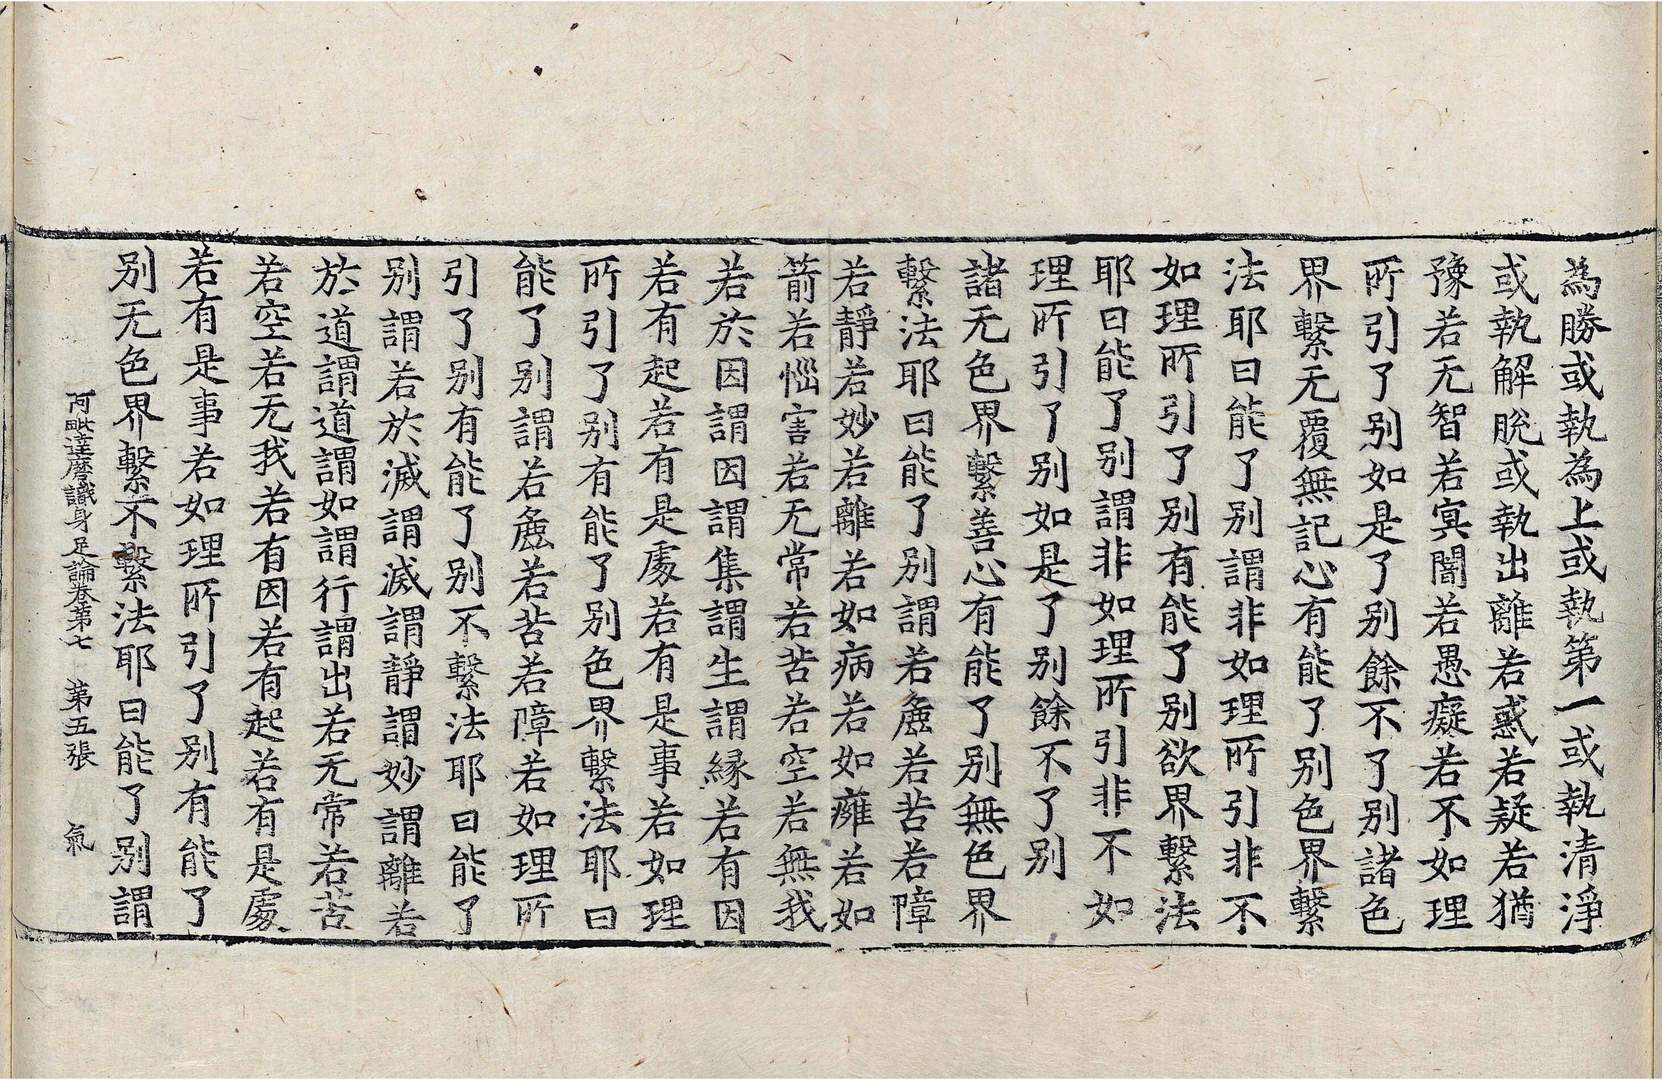 為勝或執為上或執第一或執清淨
或執解脫或執出離若惑若疑若猶
豫若无智若冥闇若愚癡若不如理
所引了别如是了别餘不了别諸色
界繫无覆無記心有能了别色界繫
法耶曰能了别謂非如理所引非不
如理所引了别有能了别欲界繫法
耶曰能了别謂非如理所引非不如
理所引了别如是了别餘不了别
諸无色界繫善心有能了别無色界
繫法耶曰能了别謂若麁若苦若障
若靜若妙若離若如病若如癰若如
箭若惱害若无常若苦若空若無我
若於因謂因謂集謂生謂縁若有因
若有起若有是處若有是事若如理
所引了别有能了别色界繫法耶曰
能了别謂若麁若苦若障若如理所
引了别有能了别不繫法耶曰能了
别謂若於滅謂滅謂靜謂妙謂離若
於道謂道謂如謂行謂出若无常若苦
若空若无我若有因若有起若有是處
若有是事若如理所引了别有能了
别无色界繫不繫法耶曰能了别謂
阿毗達磨識身足論卷第七 第五張 氣